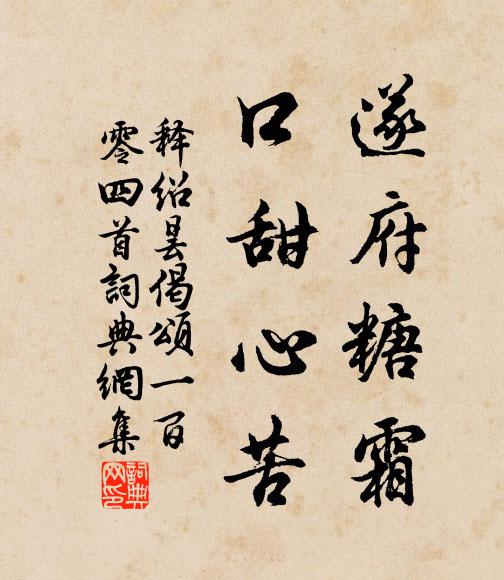 遂府糖霜
口甜心苦
释绍昙偈颂一百
零四首詞典網集
詞典
网印